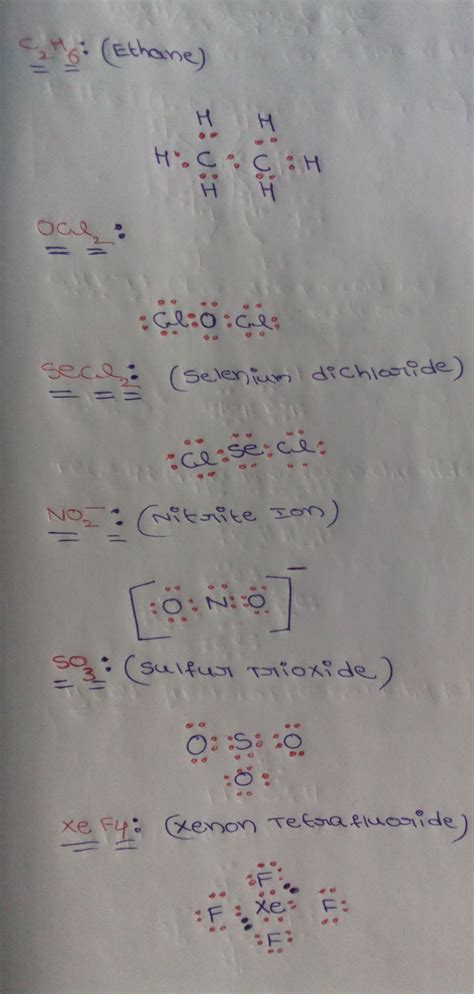 C2H6: (Ethane)
H H
H:C:C:H
H H
OCl2:
:Cl:O:Cl:
SeCl2: (Selenium dichloride)
:Cl:Se:Cl:
NO2-: (Nitrite Ion)
[:O:N::O]-
SO3: (Sulfur Trioxide)
O::S::O
:O:
XeF4: (Xenon Tetrafluoride)
:F:
:F:Xe: F:
:F: